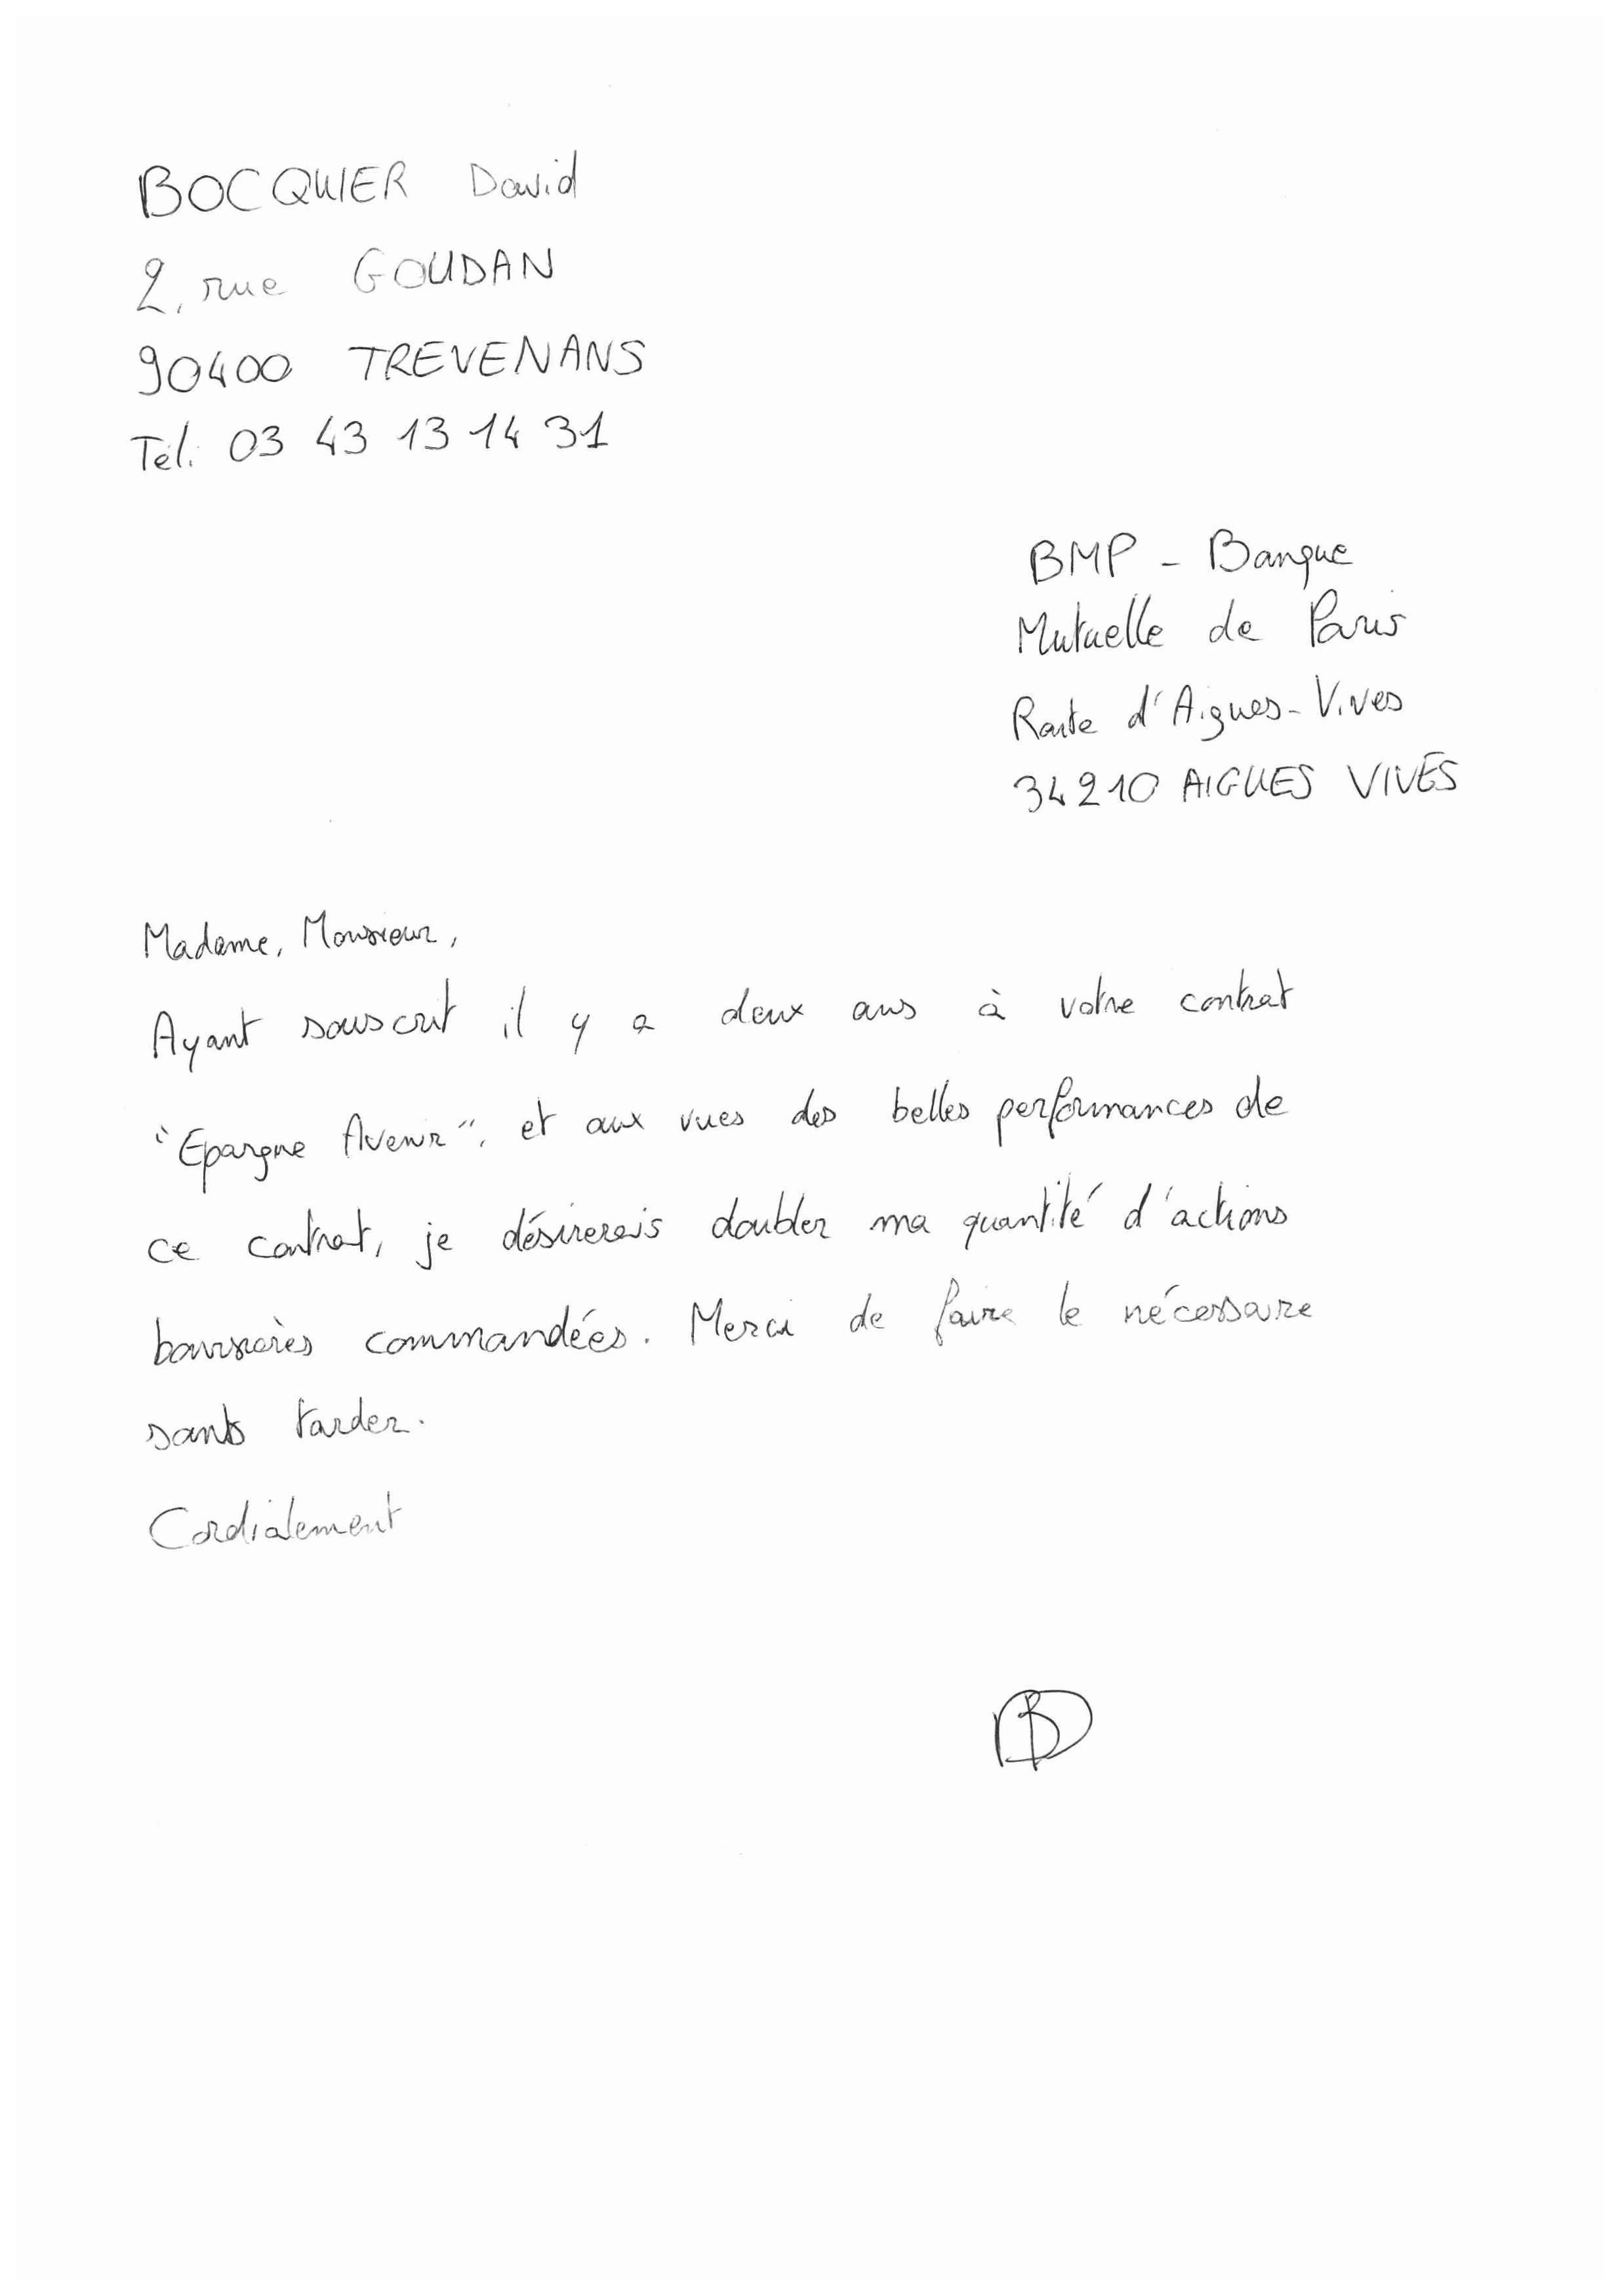 BOCQUIER David
2, rue GOUDAN
90400 TREVENANS
Tél: 03 43 13 14 31
BMP - Banque
Mutuelle de Paris
Route d'Aigues-Vives
34210 AIGUES VIVES
Madame, Monsieur,
Ayant souscrit il y a deux ans à votre contrat
"Epargne Avenir", et aux vues des belles performances de
ce contrat, je désirerais doubler ma quantité d'actions
boursières commandées. Merci de faire le nécessaire
sans tarder.
Cordialement
BD